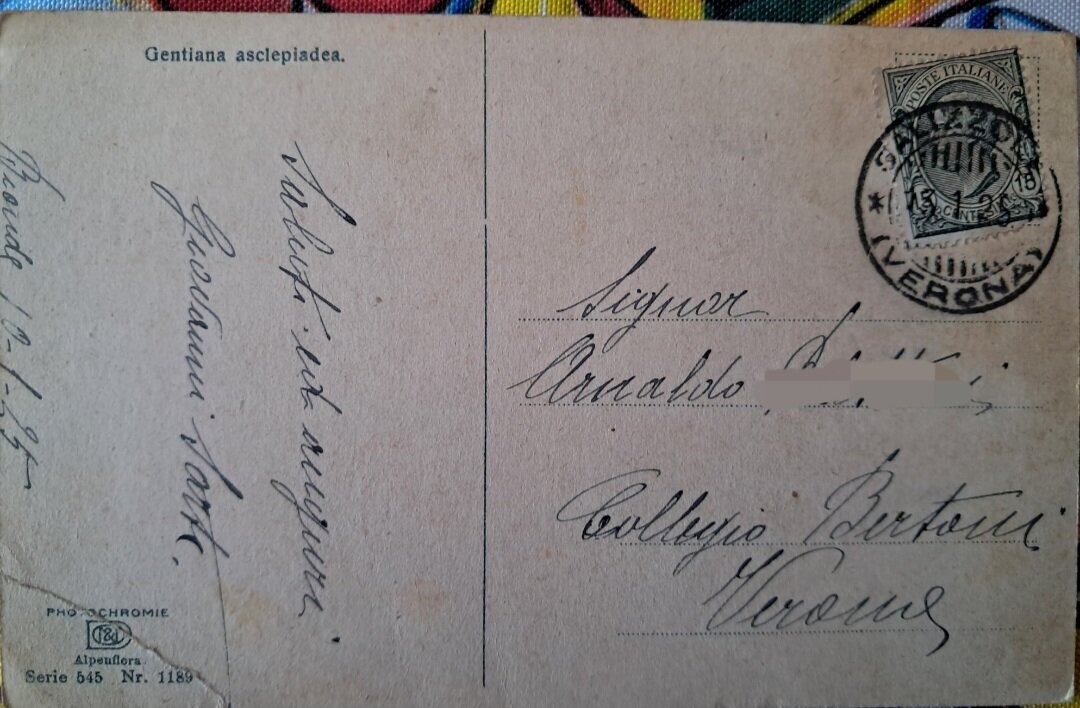 Gentiana asclepiadea.
Saluti ed auguri
Giovanni
10-1-25
PHOTOCHROMIE
Alpenflora.
Serie 545 Nr. 1189
POSTE ITALIANE
18
(VERONA)
Signor
Arnaldo
Collegio Bertoni
Verona